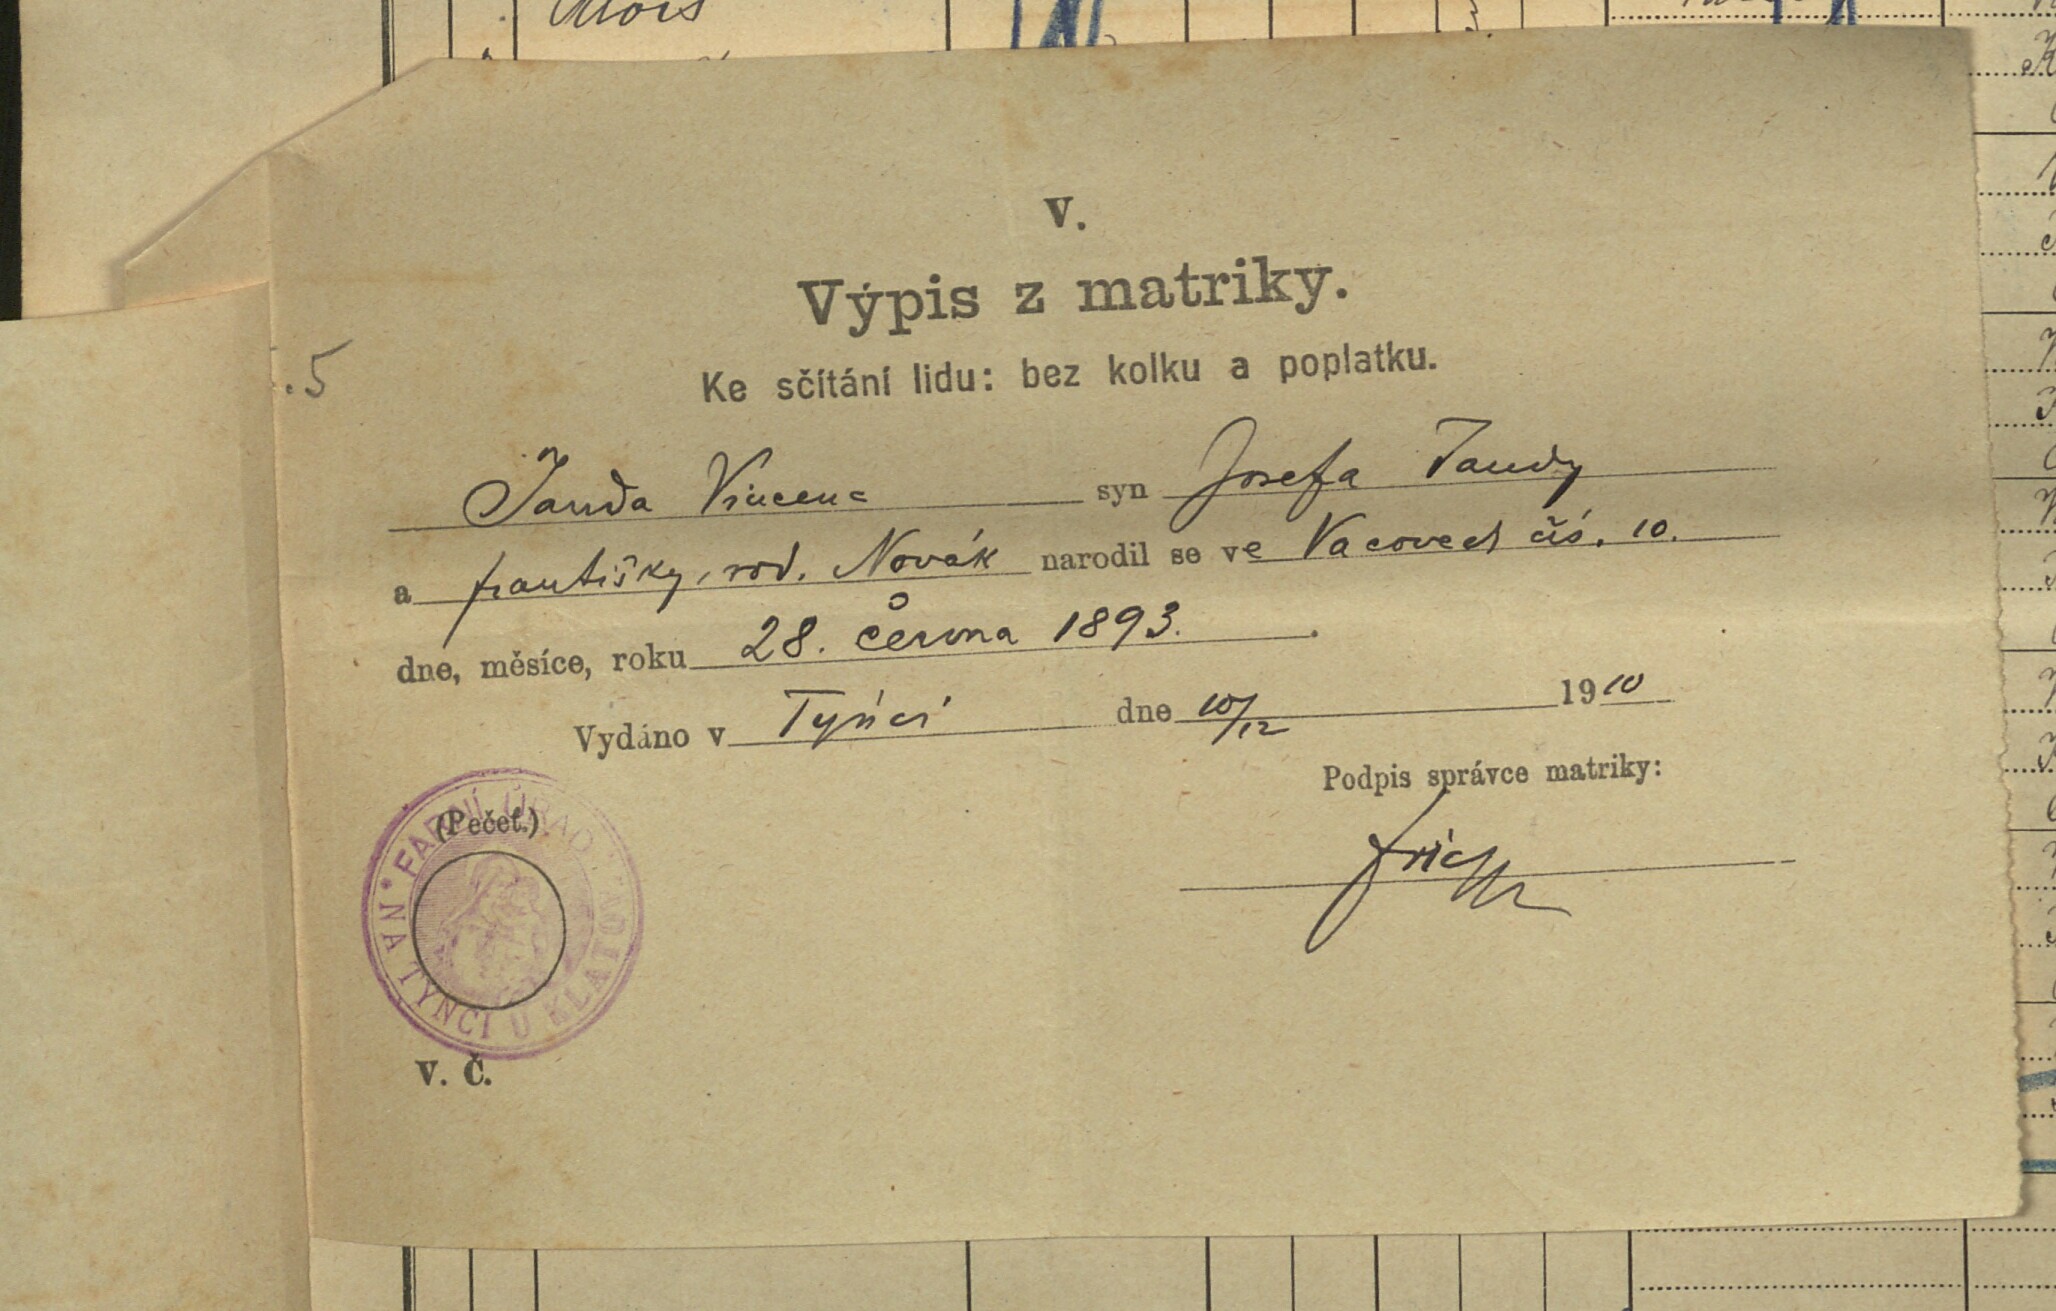 Alois
V.
Výpis z matriky.
.5
Ke sčítání lidu: bez kolku a poplatku.
Janda Vincenc syn Josefa Jandy
a Františky, rod. Novák narodil se ve Vacovech čís. 10.
dne, měsíce, roku 28. června 1893.
Vydáno v Týnci dne 10/12 1910
Podpis správce matriky:
(Pečeť.)
* FARNÍ ÚŘAD *
NA TÝNCI U KLATOV
V. Č.